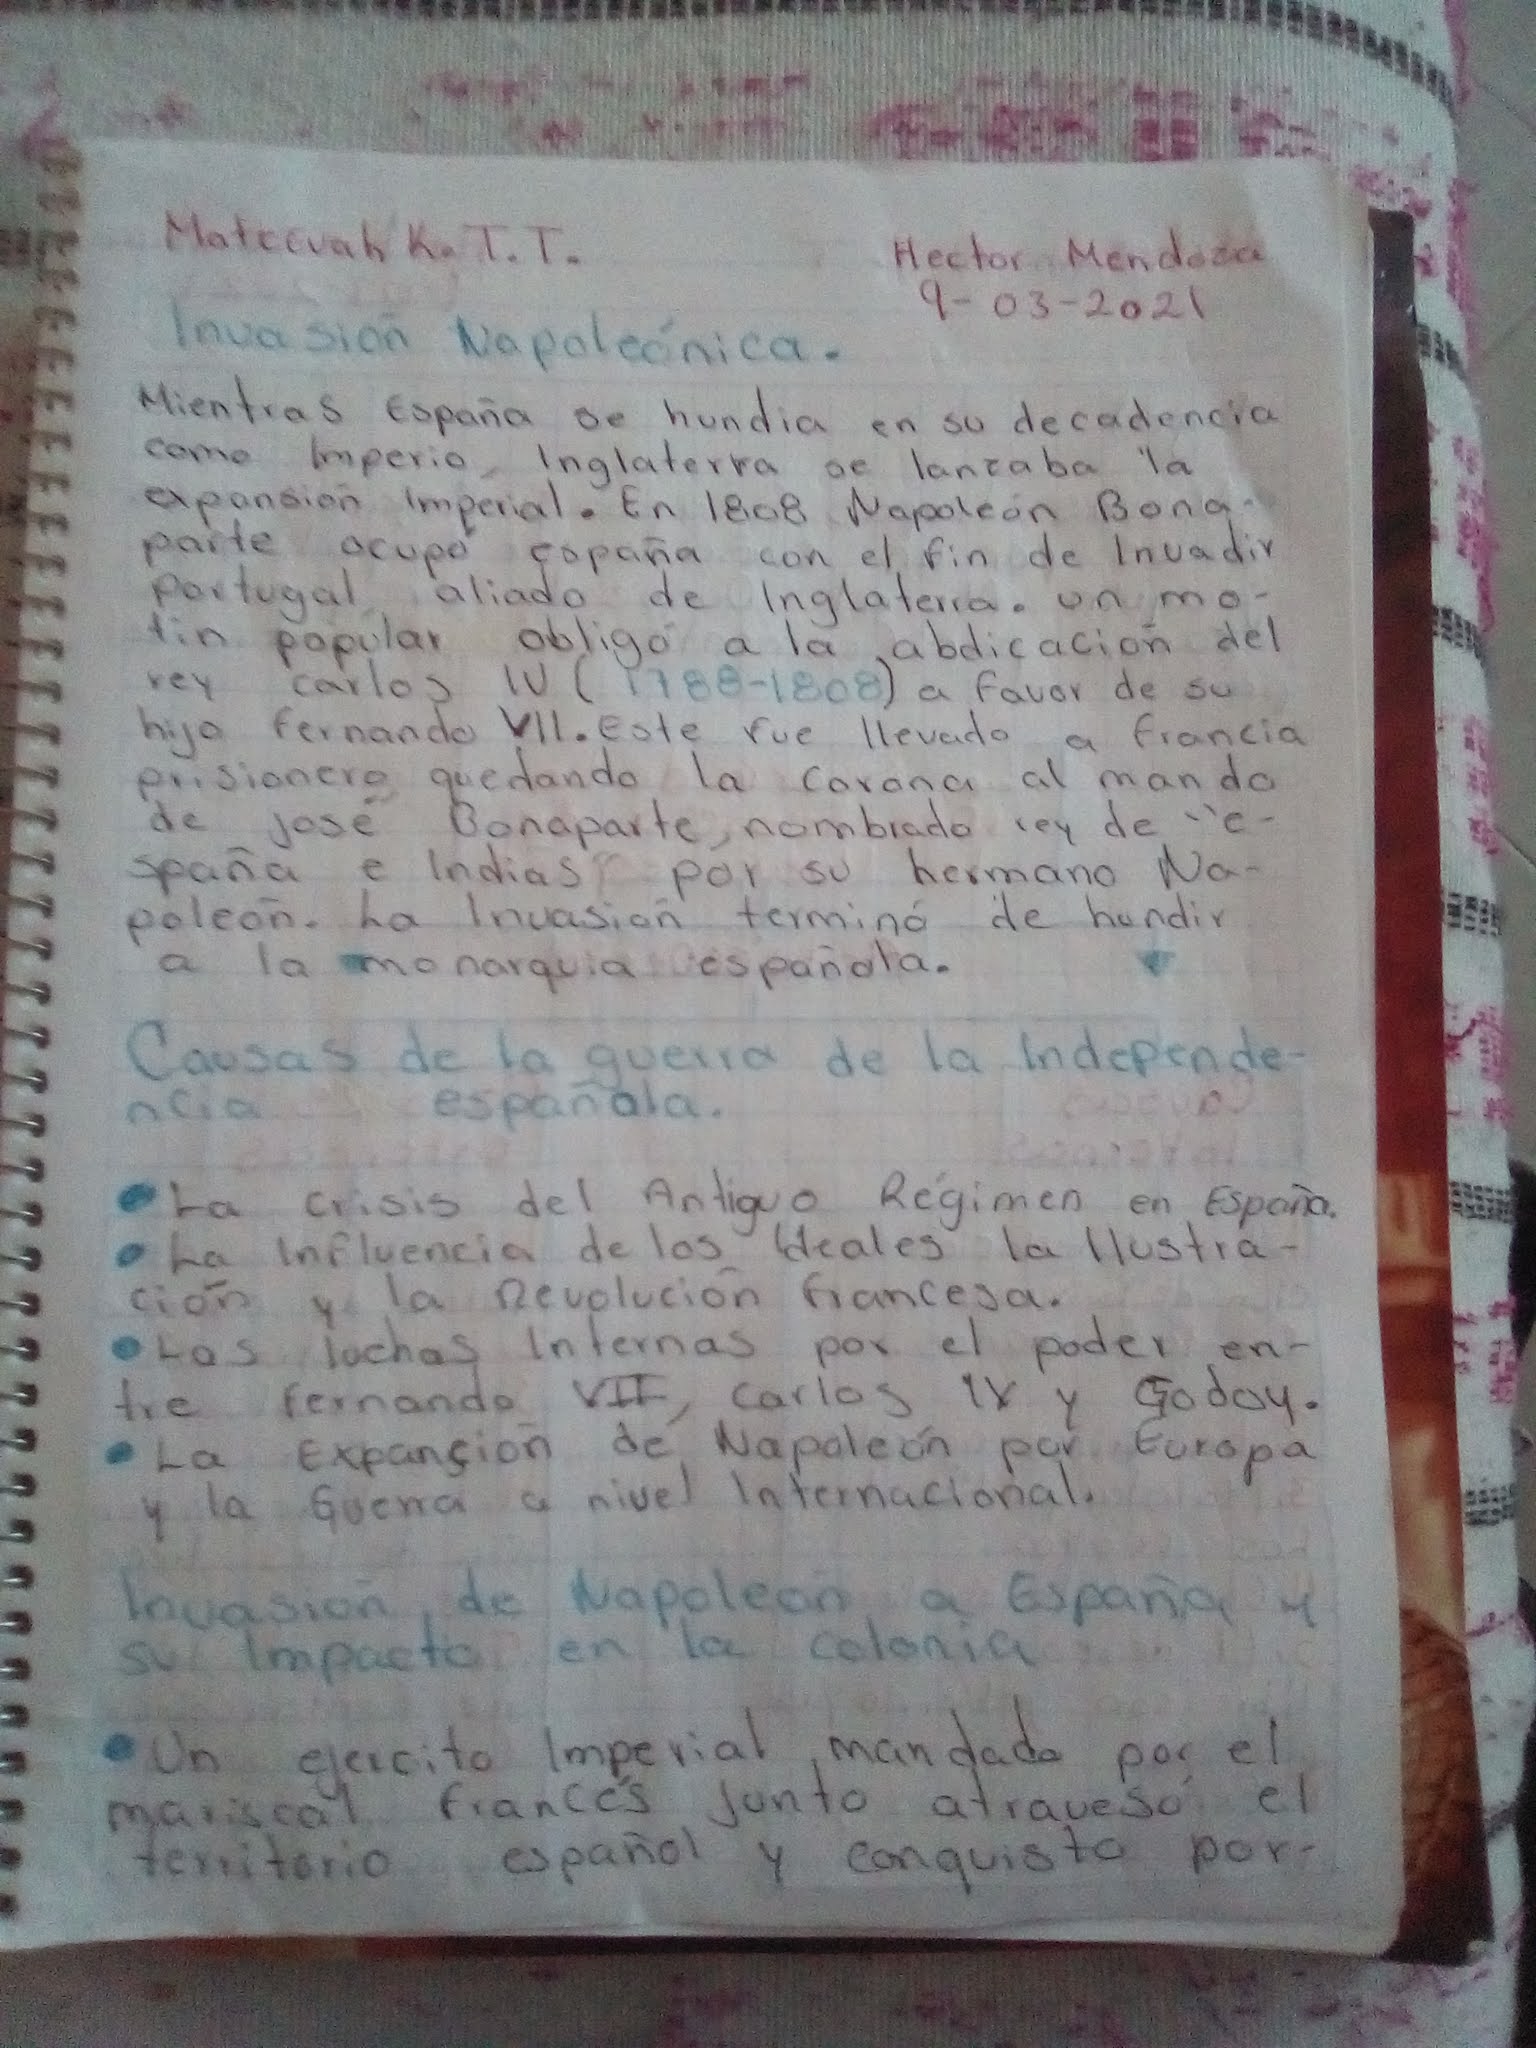 Mateevah K. T. T.
Hector Mendoza
9-03-2021
Invasión Napoleónica.
Mientras España se hundia en su decadencia
como Imperio, Inglaterra se lanzaba "la
expansión Imperial. En 1808 Napoleón Bona-
parte ocupó españa con el fin de Invadir
Portugal, aliado de Inglaterra. Un mo-
tin popular obligó a la abdicación del
rey carlos IV (1788-1808) a favor de su
hijo Fernando VII. Este fue llevado a francia
prisionero, quedando la corona al mando
de josé Bonaparte, nombrado rey de "e-
spaña e Indias" por su hermano Na-
poleón. La Invasión terminó de hundir
a la monarquia española.
Causas de la guerra de la Independe-
ncia española.
La crisis del Antiguo Régimen en España.
La Influencia de los Ideales la Ilustra-
ción y la Revolución francesa.
Las luchas Internas por el poder en-
tre fernando VII, carlos IV y Godoy.
La Expanción de Napoleón por Europa
y la Guerra a nivel Internacional.
Invasión de Napoleón a España y
su Impacto en la colonia
Un ejercito Imperial mandado por el
mariscal francés Junto atravesó el
territorio español y conquisto por-